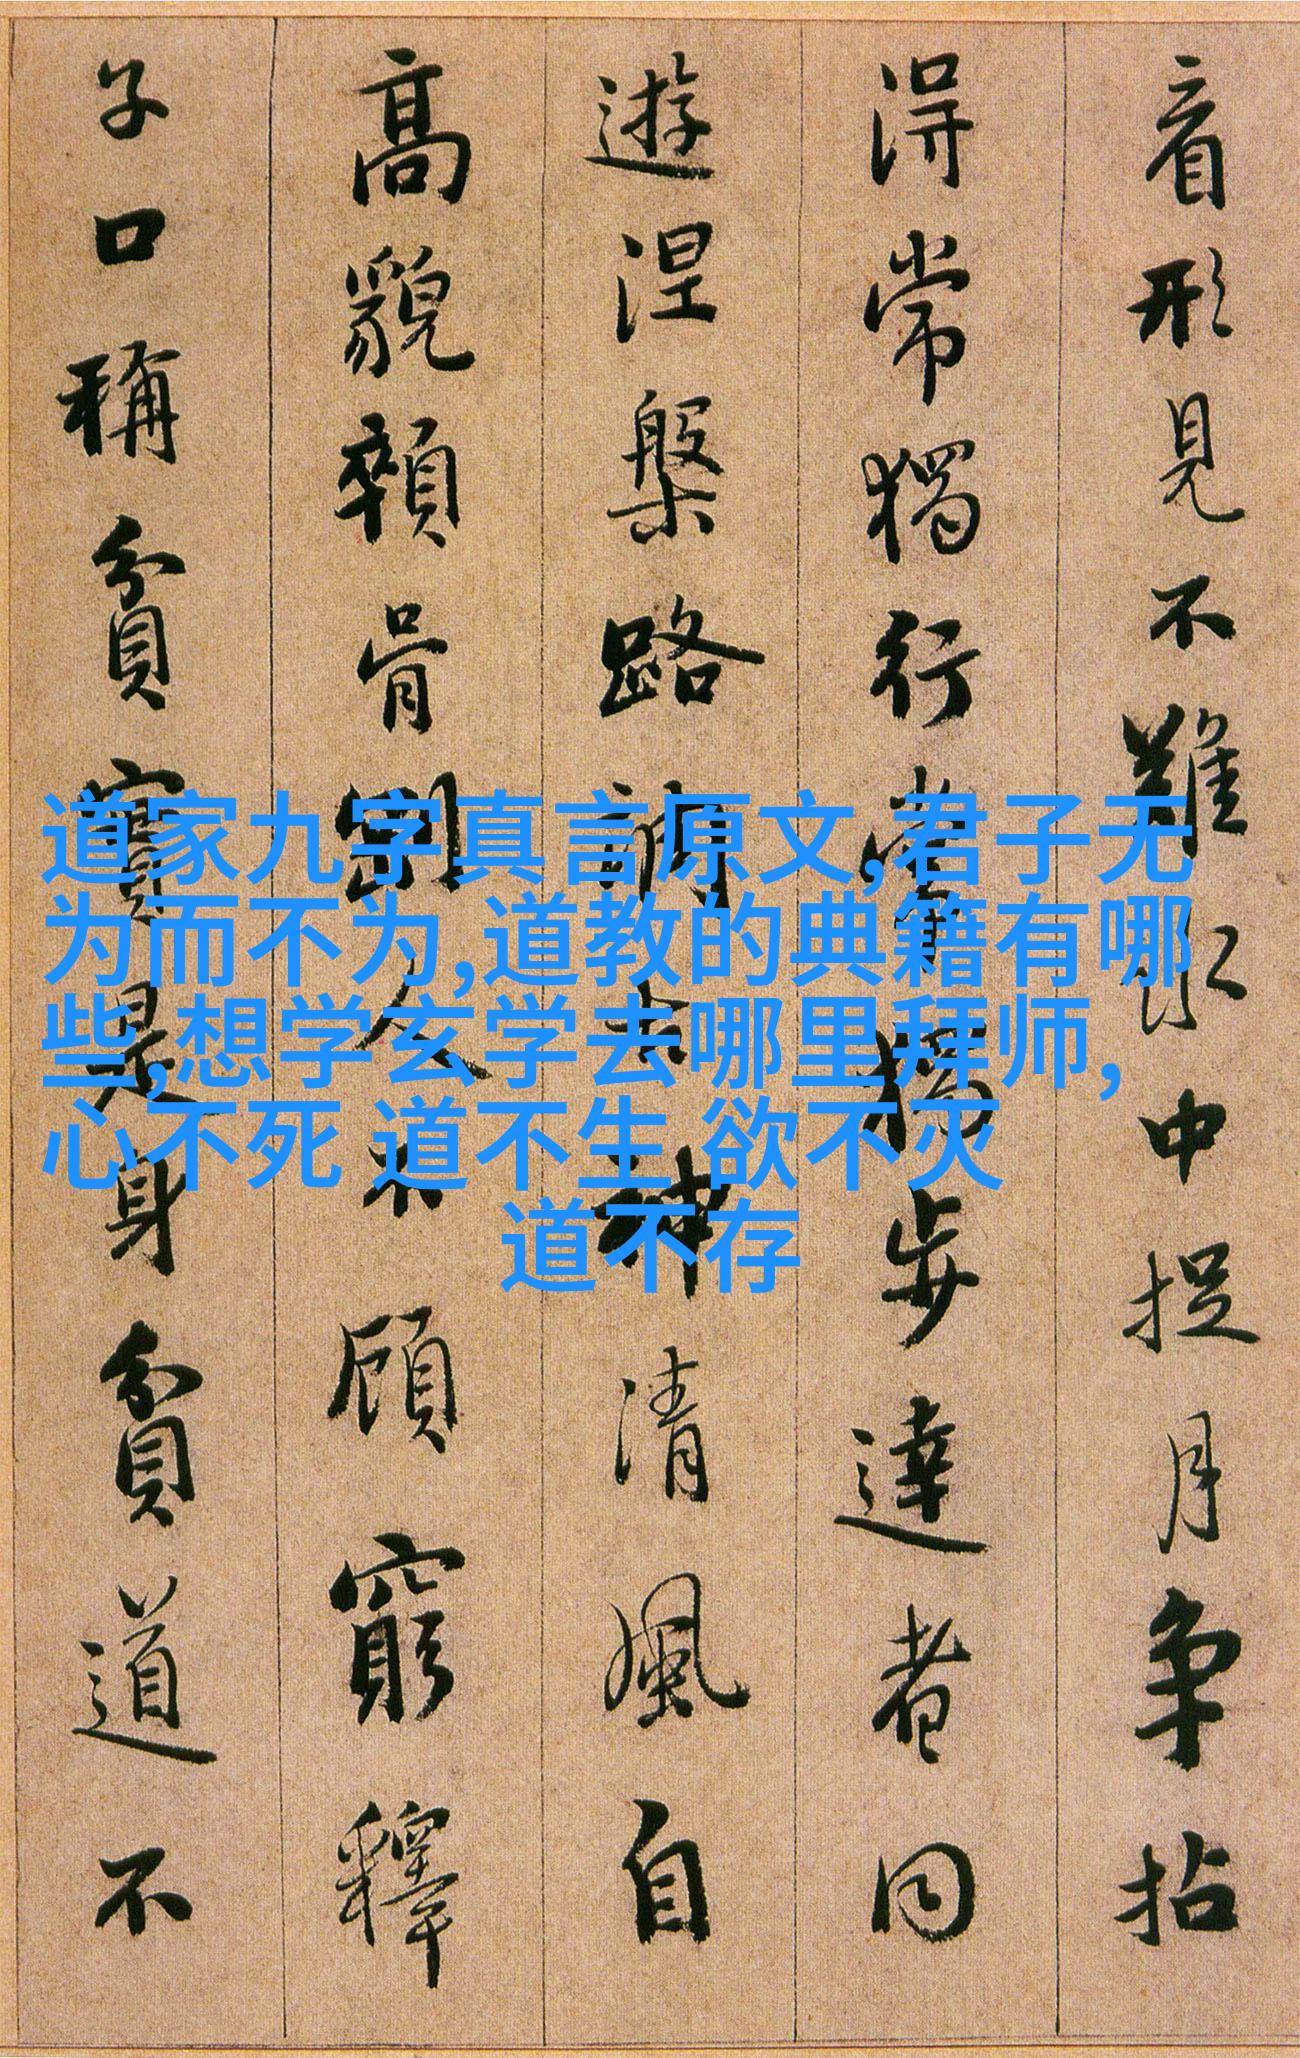 看形見不難水中捉月争拈
得常獨行常獨步達者同
遊涅槃路調古神清風自
高貌顇骨剛人不顧窮釋
子口稱貧實是身貧道不
道家九字真言原文,君子无
为而不为,道教的典籍有哪
些,想学玄学去哪里拜师,
心不死 道不生 欲不灭
道不存